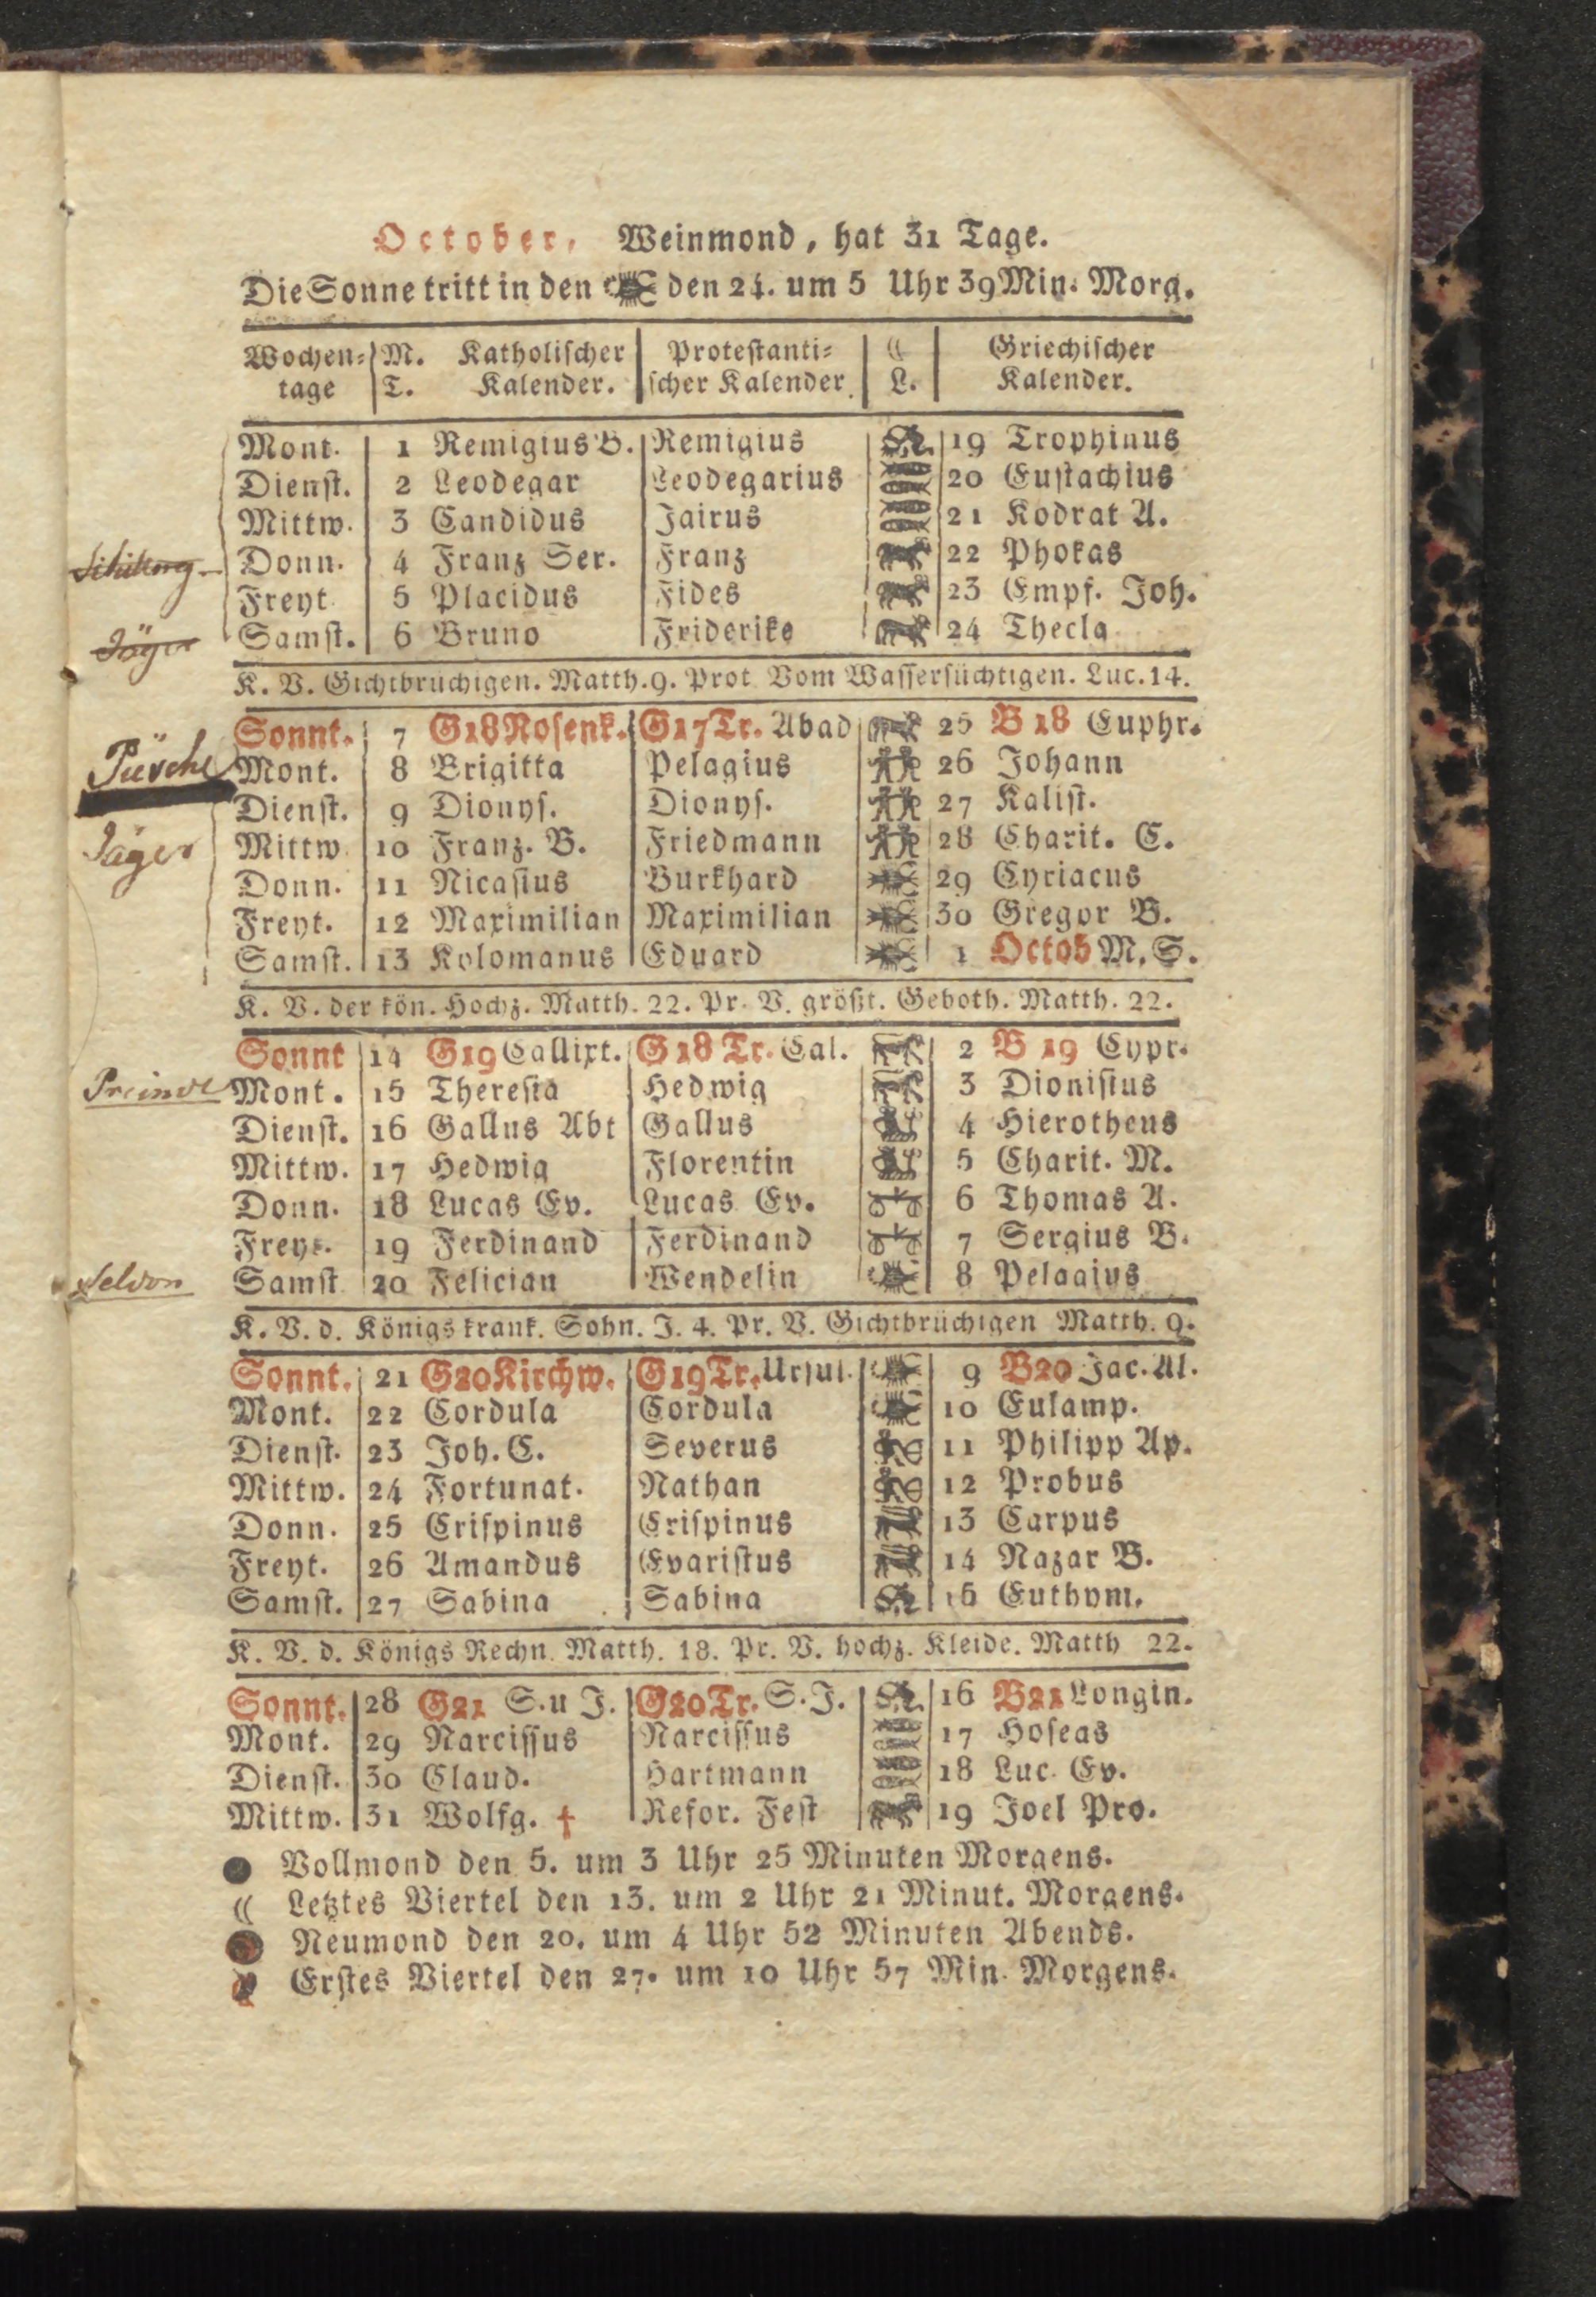 October, Weinmond, hat 31 Tage.
Die Sonne tritt in den den 24. um 5 Uhr 39 Min. Morg.
Wochen= M. Katholiſcher Proteſtanti= ☾ Griechiſcher
tage T. Kalender. ſcher Kalender. L. Kalender.
Mont. 1 Remigius B. Remigius 19 Trophinus
Dienſt. 2 Leodegar Leodegarius 20 Euſtachius
Mittw. 3 Candidus Jairus 21 Kodrat A.
Schilling Donn. 4 Franz Ser. Franz 22 Phokas
Freyt. 5 Placidus Fides 23 Empf. Joh.
Jäger Samſt. 6 Bruno Friderike 24 Thecla
K. V. Gichtbrüchigen. Matth. 9. Prot Vom Waſſerſüchtigen. Luc. 14.
Sonnt. 7 G18 Roſenk. G17 Tr. Abad 25 B 18 Euphr.
Pürche Mont. 8 Brigitta Pelagius 26 Johann
Dienſt. 9 Dionyſ. Dionyſ. 27 Kaliſt.
Jäger Mittw 10 Franz. B. Friedmann 28 Charit. E.
Donn. 11 Nicaſius Burkhard 29 Cyriacus
Freyt. 12 Maximilian Maximilian 30 Gregor B.
Samſt. 13 Kolomanus Eduard 1 Octob M. S.
K. V. der kön. Hochz. Matth. 22. Pr. V. größt. Geboth. Matth. 22.
Sonnt 14 G19 Callixt. G18 Tr. Cal. 2 B 19 Cypr.
Mont. 15 Thereſia Hedwig 3 Dioniſius
Dienſt. 16 Gallus Abt Gallus 4 Hierotheus
Mittw. 17 Hedwig Florentin 5 Charit. M.
Donn. 18 Lucas Ev. Lucas Ev. 6 Thomas A.
Freyt. 19 Ferdinand Ferdinand 7 Sergius B.
Samſt 20 Felician Wendelin 8 Pelagius
K. V. d. Königs krank. Sohn. J. 4. Pr. V. Gichtbrüchigen Matth. 9.
Sonnt. 21 G20 Kirchw. G19 Tr. Urſul. 9 B20 Jac. Al.
Mont. 22 Cordula Cordula 10 Eulamp.
Dienſt. 23 Joh. C. Severus 11 Philipp Ap.
Mittw. 24 Fortunat. Nathan 12 Probus
Donn. 25 Criſpinus Criſpinus 13 Carpus
Freyt. 26 Amandus Evariſtus 14 Nazar B.
Samſt. 27 Sabina Sabina 15 Euthym.
K. V. d. Königs Rechn. Matth. 18. Pr. V. hochz. Kleide. Matth 22.
Sonnt. 28 G21 S. u J. G20 Tr. S. J. 16 B21 Longin.
Mont. 29 Narciſſus Narciſſus 17 Hoſeas
Dienſt. 30 Claud. Hartmann 18 Luc. Ev.
Mittw. 31 Wolfg. † Refor. Feſt 19 Joel Pro.
Vollmond den 5. um 3 Uhr 25 Minuten Morgens.
☾ Letztes Viertel den 13. um 2 Uhr 21 Minut. Morgens.
Neumond den 20. um 4 Uhr 52 Minuten Abends.
Erſtes Viertel den 27. um 10 Uhr 57 Min. Morgens.